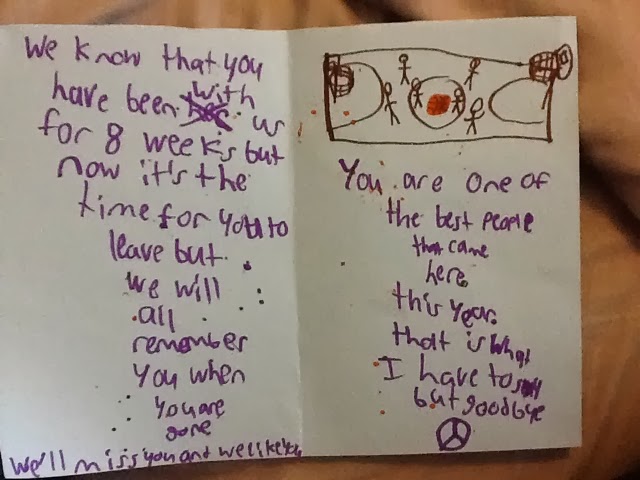 We know that you
have been with us
for 8 weeks but
now it's the
time for you to
leave but
we will
all
remember
you when
you are
gone
We'll miss you and we like you
You are one of
the best people
that came
here
this year.
that is what
I have to say
but goodbye